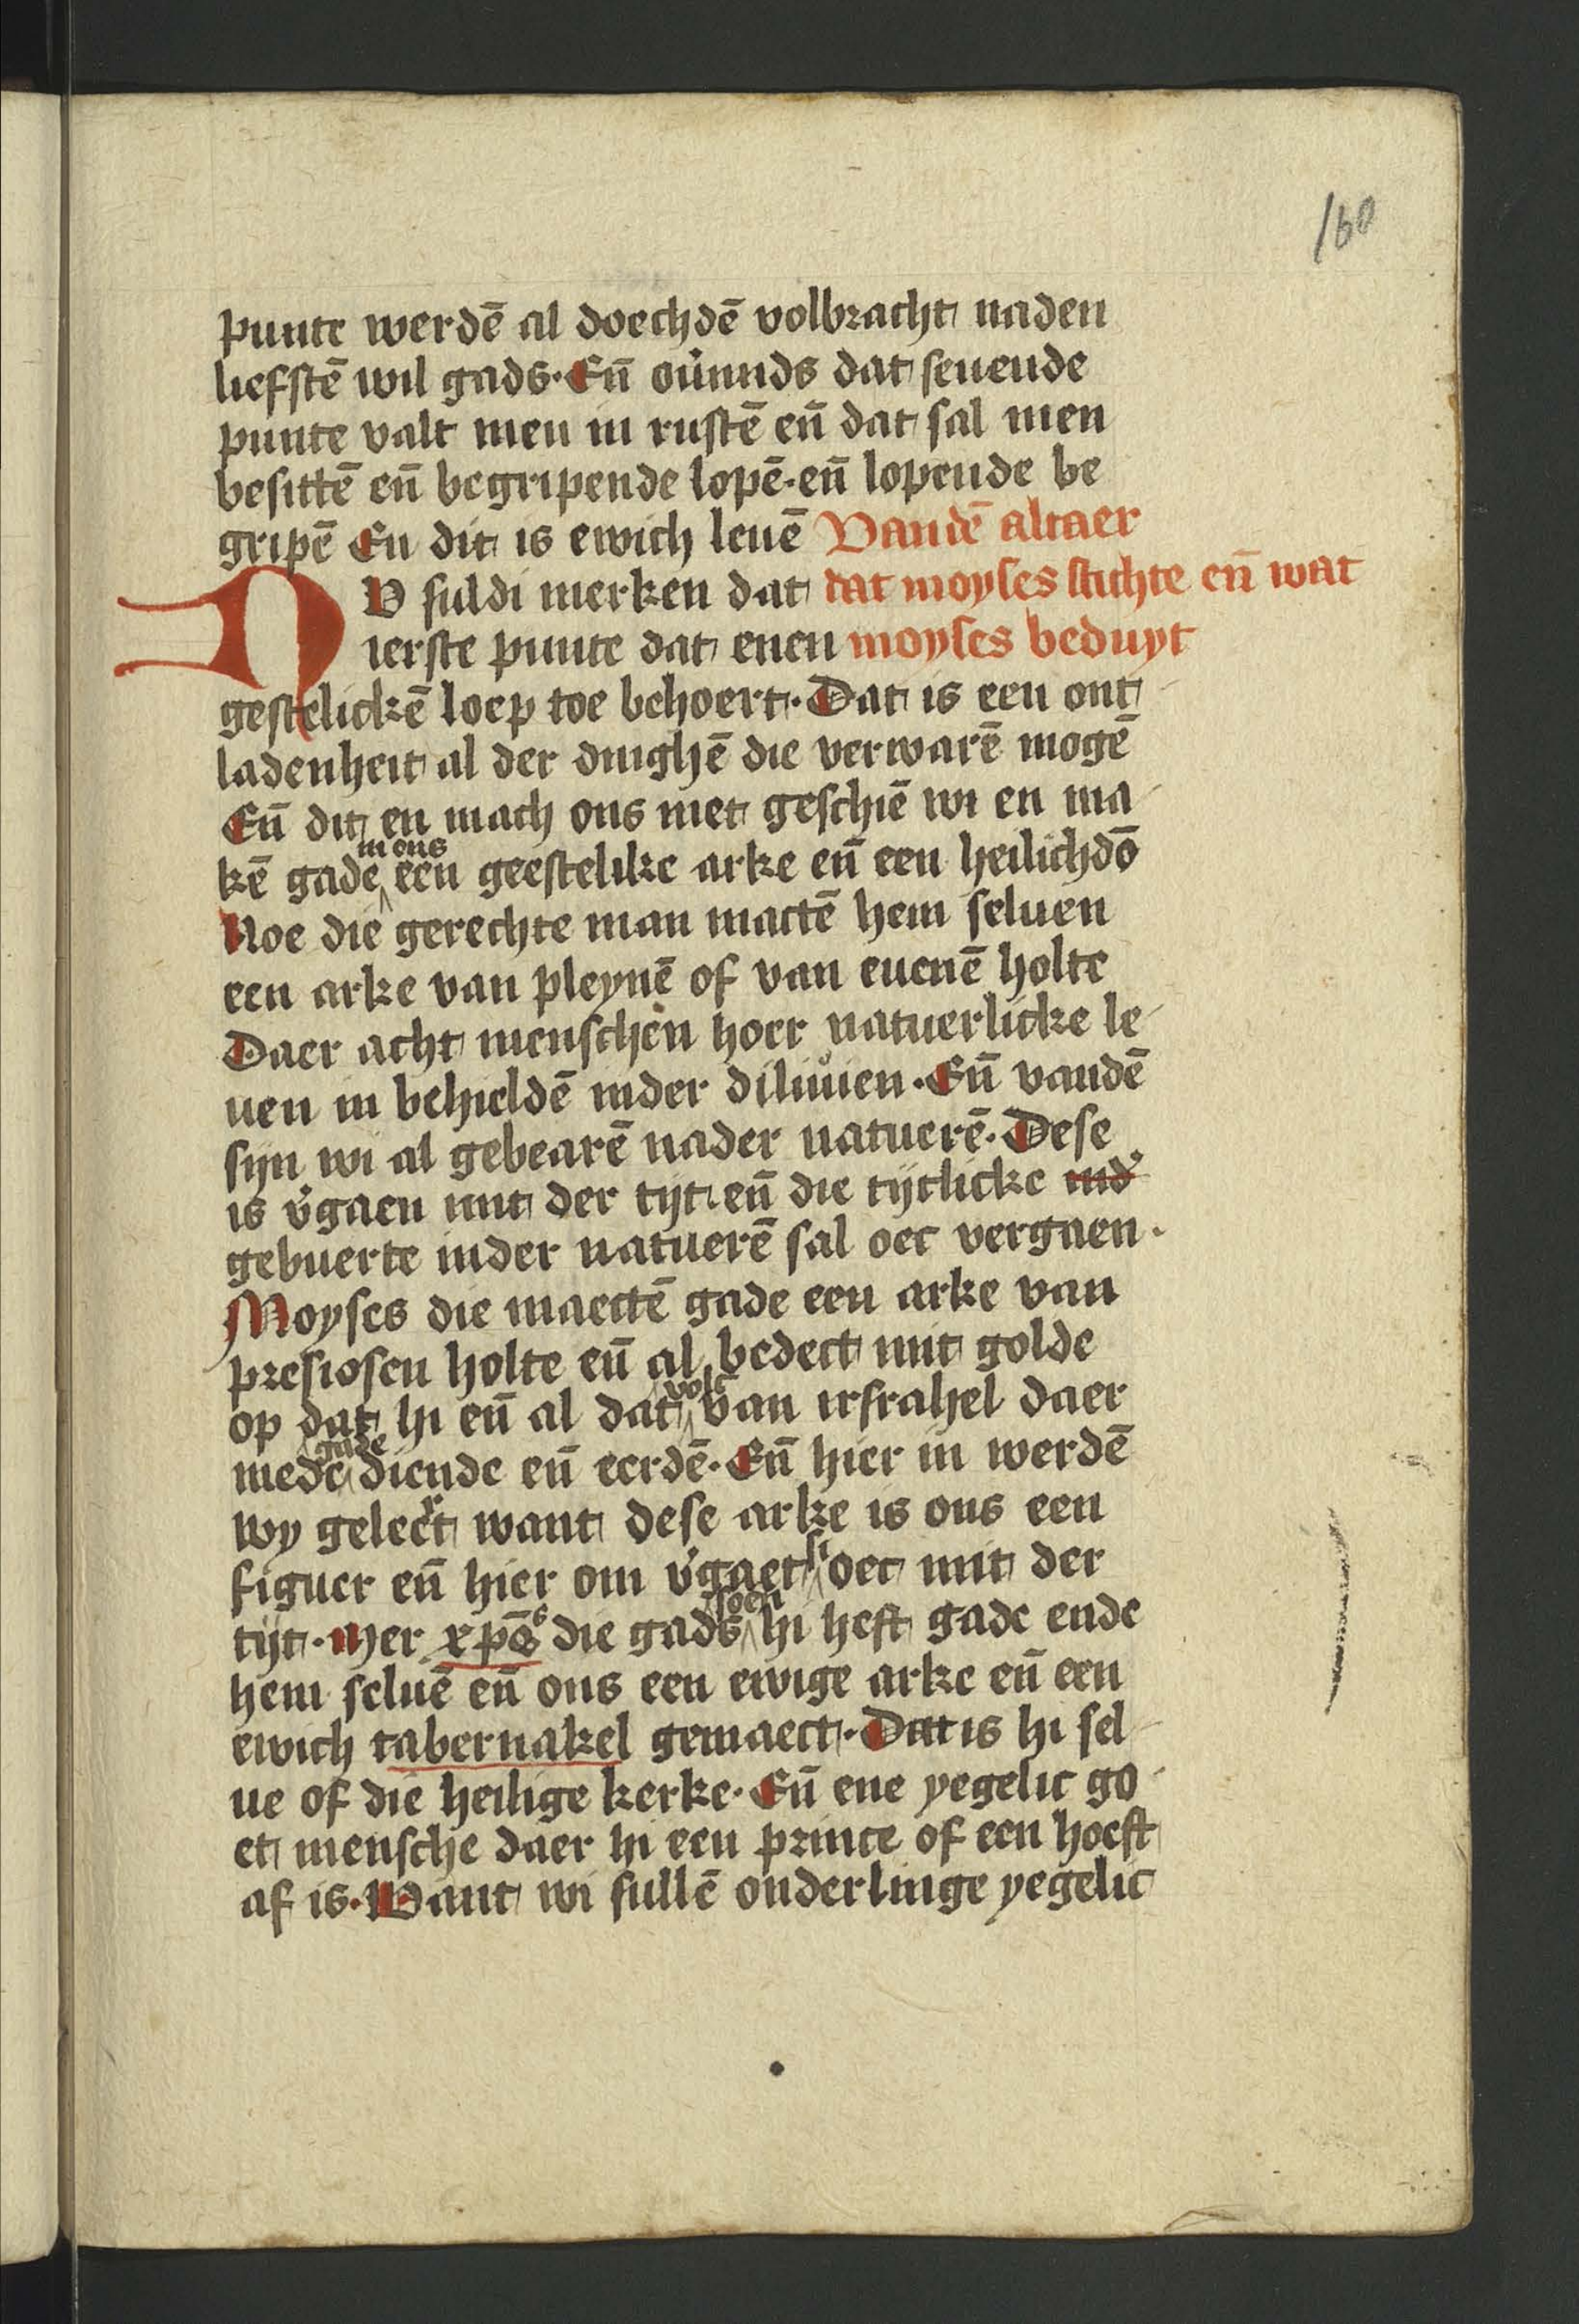 160
punte werdē al doechdē volbracht naden
liefstē wil gads. En̄ ou̓mids dat seuende
punte valt men in rustē en̄ dat sal men
besittē en̄ begripende lopē. en̄ lopende be
gripē En dit is ewich leuē Vandē altaer
NV suldi merken dat dat moyses stichte en̄ wat
ierste punte dat enen moyses beduyt
gestelickē loep toe behoert. Dat is een ont
ladenheit al der dinghē die verwarē mogē
En̄ dit en mach ons niet geschiē wi en ma
kē gade in ons een geestelike arke en̄ een heilichdō
Noe die gerechte man mactē hem seluen
een arke van pleynē of van euenē holte
Daer acht menschen hoer natuerlicke le
uen in behieldē inder diluuien. En̄ vandē
sijn wi al gebearē nader natuerē. Dese
is v̓gaen mit der tijt. en̄ die tijtlicke ind̓
gebuerte inder natuerē sal oec vergaen.
Moyses die maectē gade een arke van
presiosen holte en̄ al bedect mit golde
op dat hi en̄ al dat volc van irsrahel daer
mede gade diende en̄ eerdē. En̄ hier in werdē
wy geleert want dese arke is ons een
figuer en̄ hier om v̓gaet si oec mit der
tijt. Mer xp̄s die gads soen hi heft gade ende
hem seluē en̄ ons een ewige arke en̄ een
ewich tabernakel gemaect. Dat is hi sel
ue of die heilige kerke. En̄ ene yegelic go
et mensche daer hi een prince of een hoeft
af is. Want wi sullē onderlinge yegelic